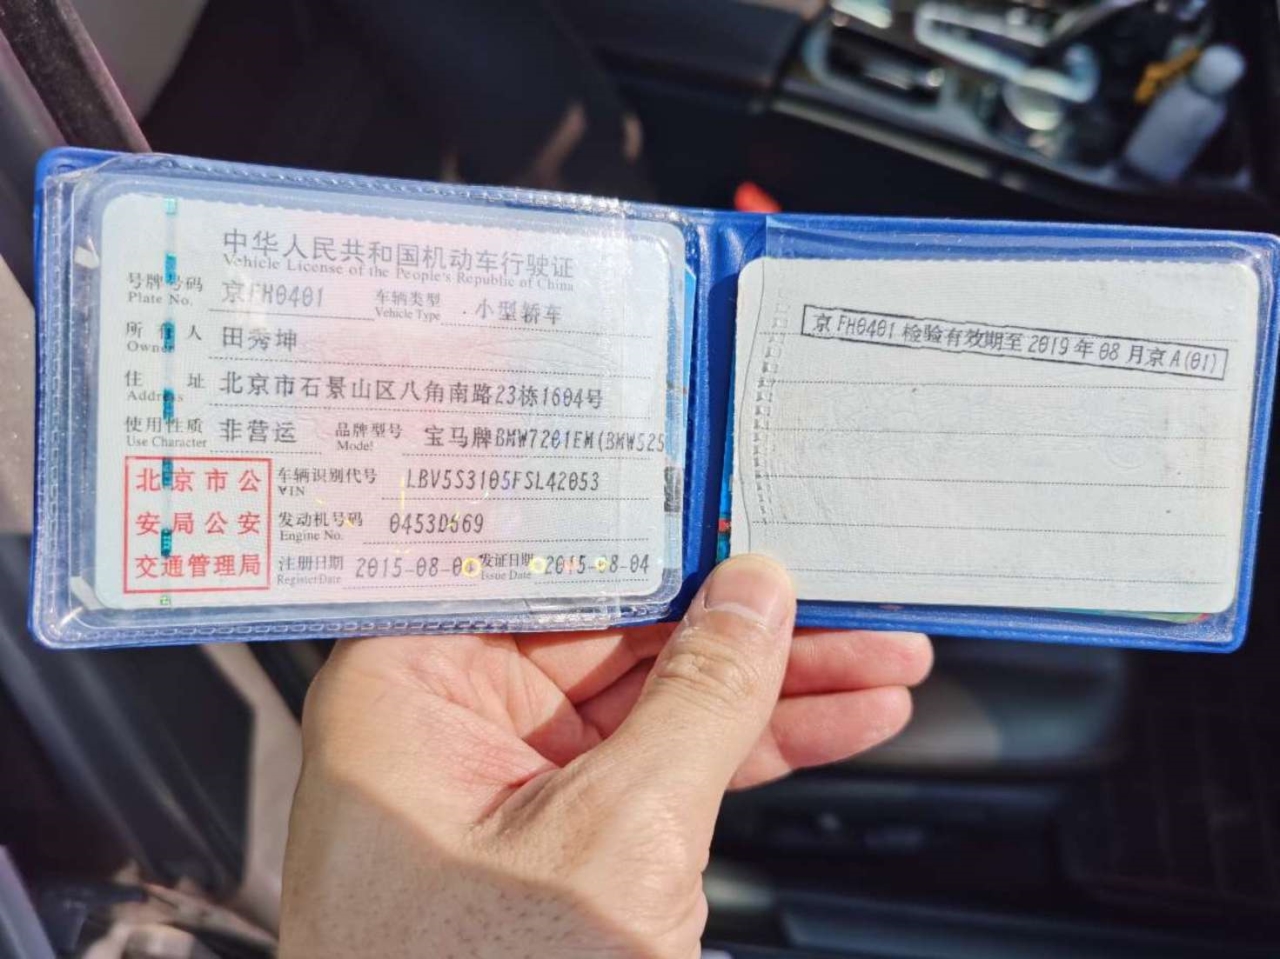 中华人民共和国机动车行驶证
Vehicle License of the People's Republic of China
号牌号码 京FH0401 车辆类型 小型轿车
Plate No. Vehicle Type
所有人 田秀坤
Owner
住址 北京市石景山区八角南路23栋1604号
Address
使用性质 非营运 品牌型号 宝马牌BMW7201EM(BMW525
Use Character Model
北京市公
安局公安
交通管理局
车辆识别代号 LBV5S3105FSL42053
VIN
发动机号码
Engine No.
注册日期 发证日期 2015-08-04
Register Date Issue Date
京FH0401 检验有效期至 2019年08月京A(01)